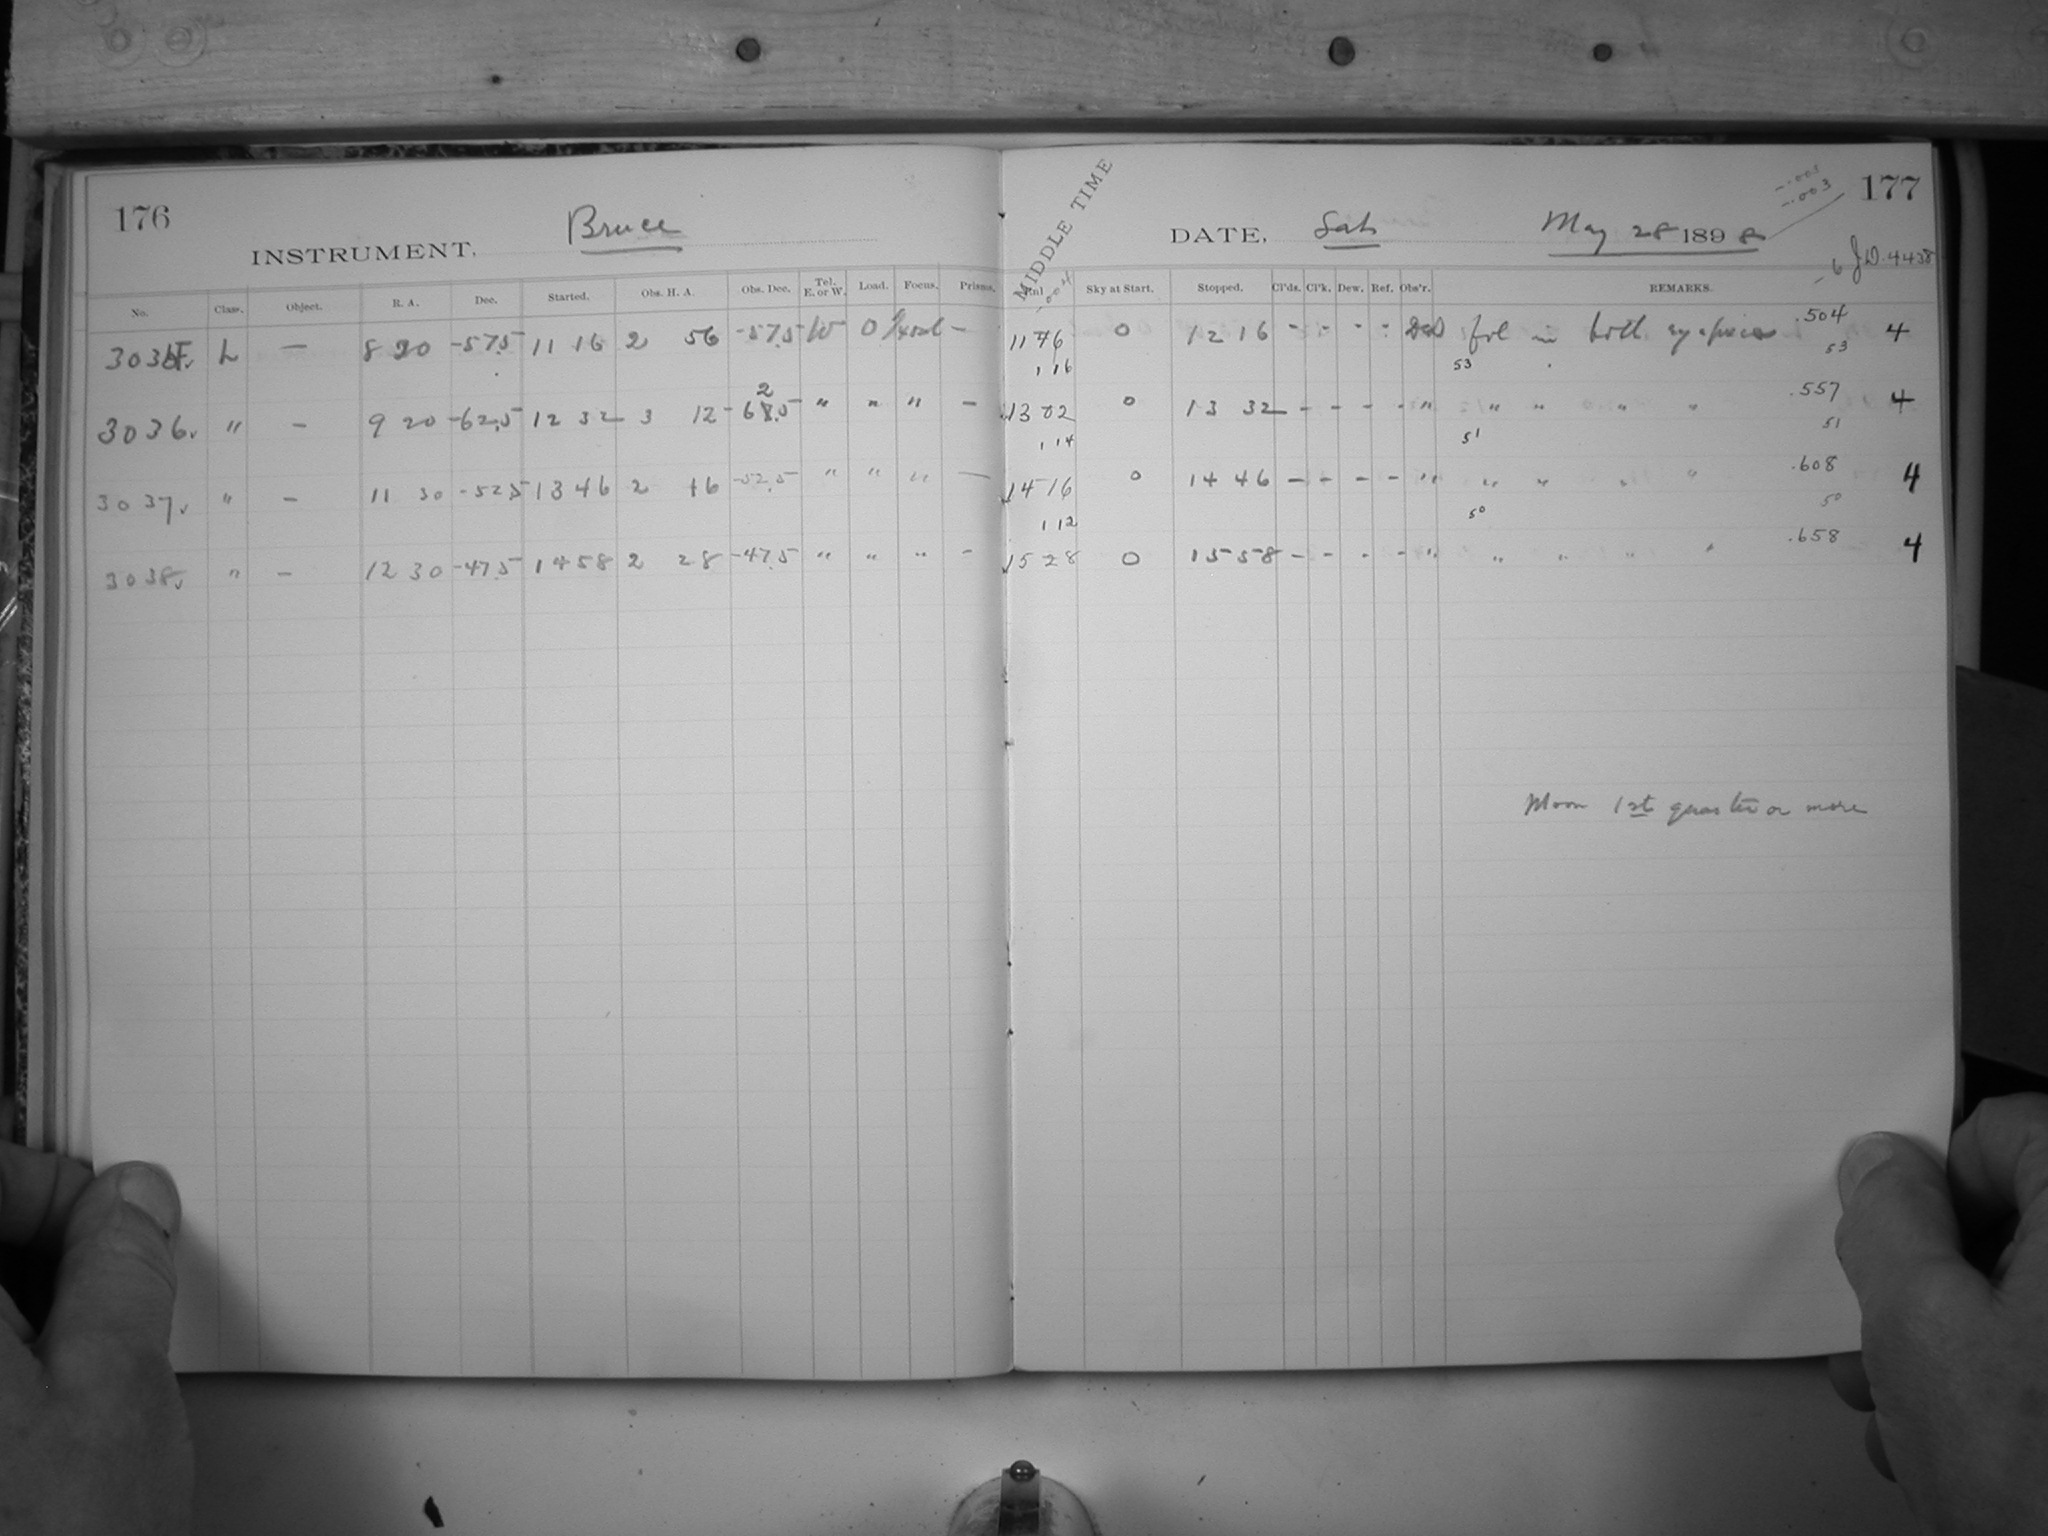 176
INSTRUMENT, Bruce
No. Class. Object. R. A. Dec. Started. Obs. H. A. Obs. Dec. Tel. E. or W. Load. Focus. Prisms.
L — 8 20 -57.5 11 16 2 56 -57.5 W 0 —
3036 " — 9 20 -62.5 12 32 3 12 -62.5 " " " —
3037 " — 11 30 -52.5 13 46 2 16 -52.5 " " " —
3038 " — 12 30 -47.5 14 58 2 28 -47.5 " " " -
177
-.001
-.003
MIDDLE TIME
DATE, Sat May 28 1898
J.D. 4438
Sky at Start. Stopped. Cl'ds. Cl'k. Dew. Ref. Obs'r. REMARKS.
11 46 0 12 16 - - - - fol in both eyepieces .504 4
1 16 53 53
13 02 0 13 32 - - - - " " " " " .557 4
1 14 51 51
14 16 0 14 46 - - - - " " " " " .608 4
1 12 50 50
15 28 0 15 58 - - - - " " " " " .658 4
Moon 1st quarter or more